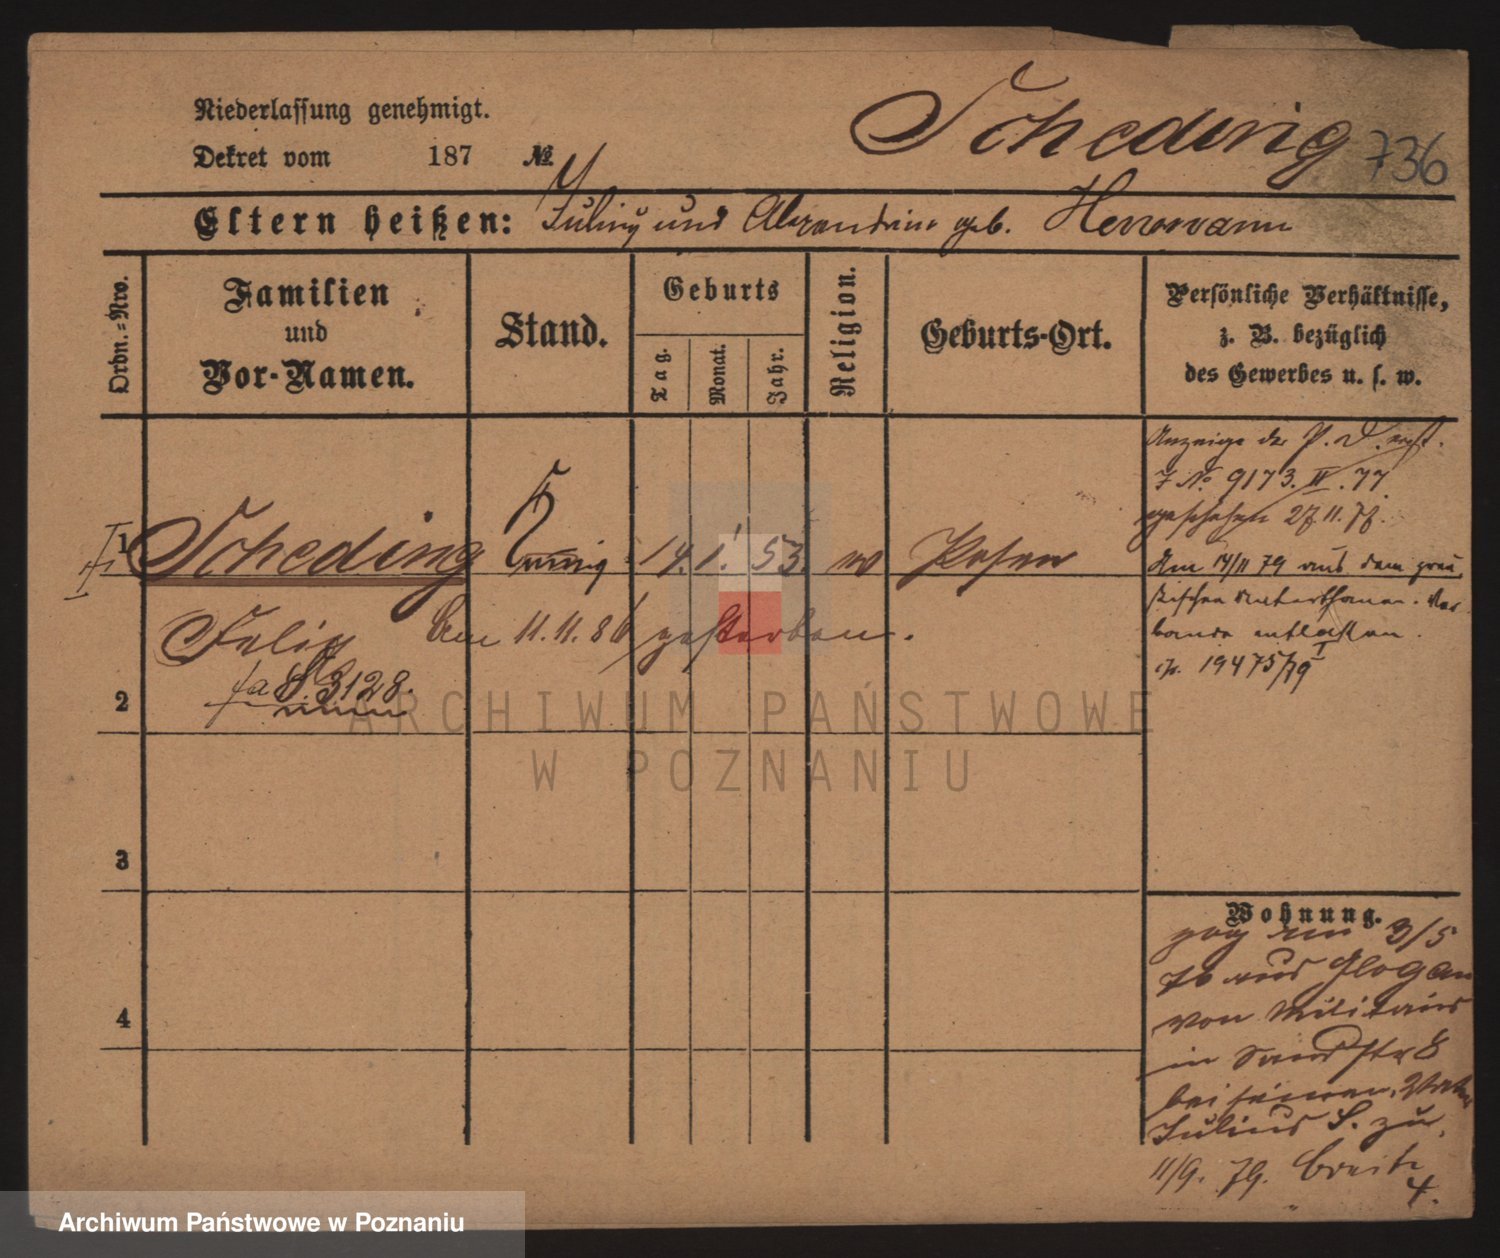 Niederlassung genehmigt.
Dekret vom 187 №
Scheding 736
Eltern heißen: Julius und Alexandrine geb. Herrmann
Ordn.-Nro.
Familien
und
Vor-Namen.
Stand.
Geburts
Tag.
Monat.
Jahr.
Religion.
Geburts-Ort.
Persönliche Verhältnisse,
z. B. bezüglich
des Gewerbes u. s. w.
Anzeige der P. D.
J № 9173. II. 77.
geschehen 27.11.77.
1 Scheding 14. 1. 53. Posen
Am 14/11 79 aus dem preu
ßischen Unterthanen. Ver
bande entlassen.
19475/79 I
Felix Am 11.11.86 gestorben.
S. 3128.
2
3
4
Wohnung.
zog am 3/5
76 aus Glogau
vom Militair
in Sandstr 8
bei seinem Vater
Julius S. zu.
11/9. 79. Breite
4.
ARCHIWUM PAŃSTWOWE
W POZNANIU
Archiwum Państwowe w Poznaniu